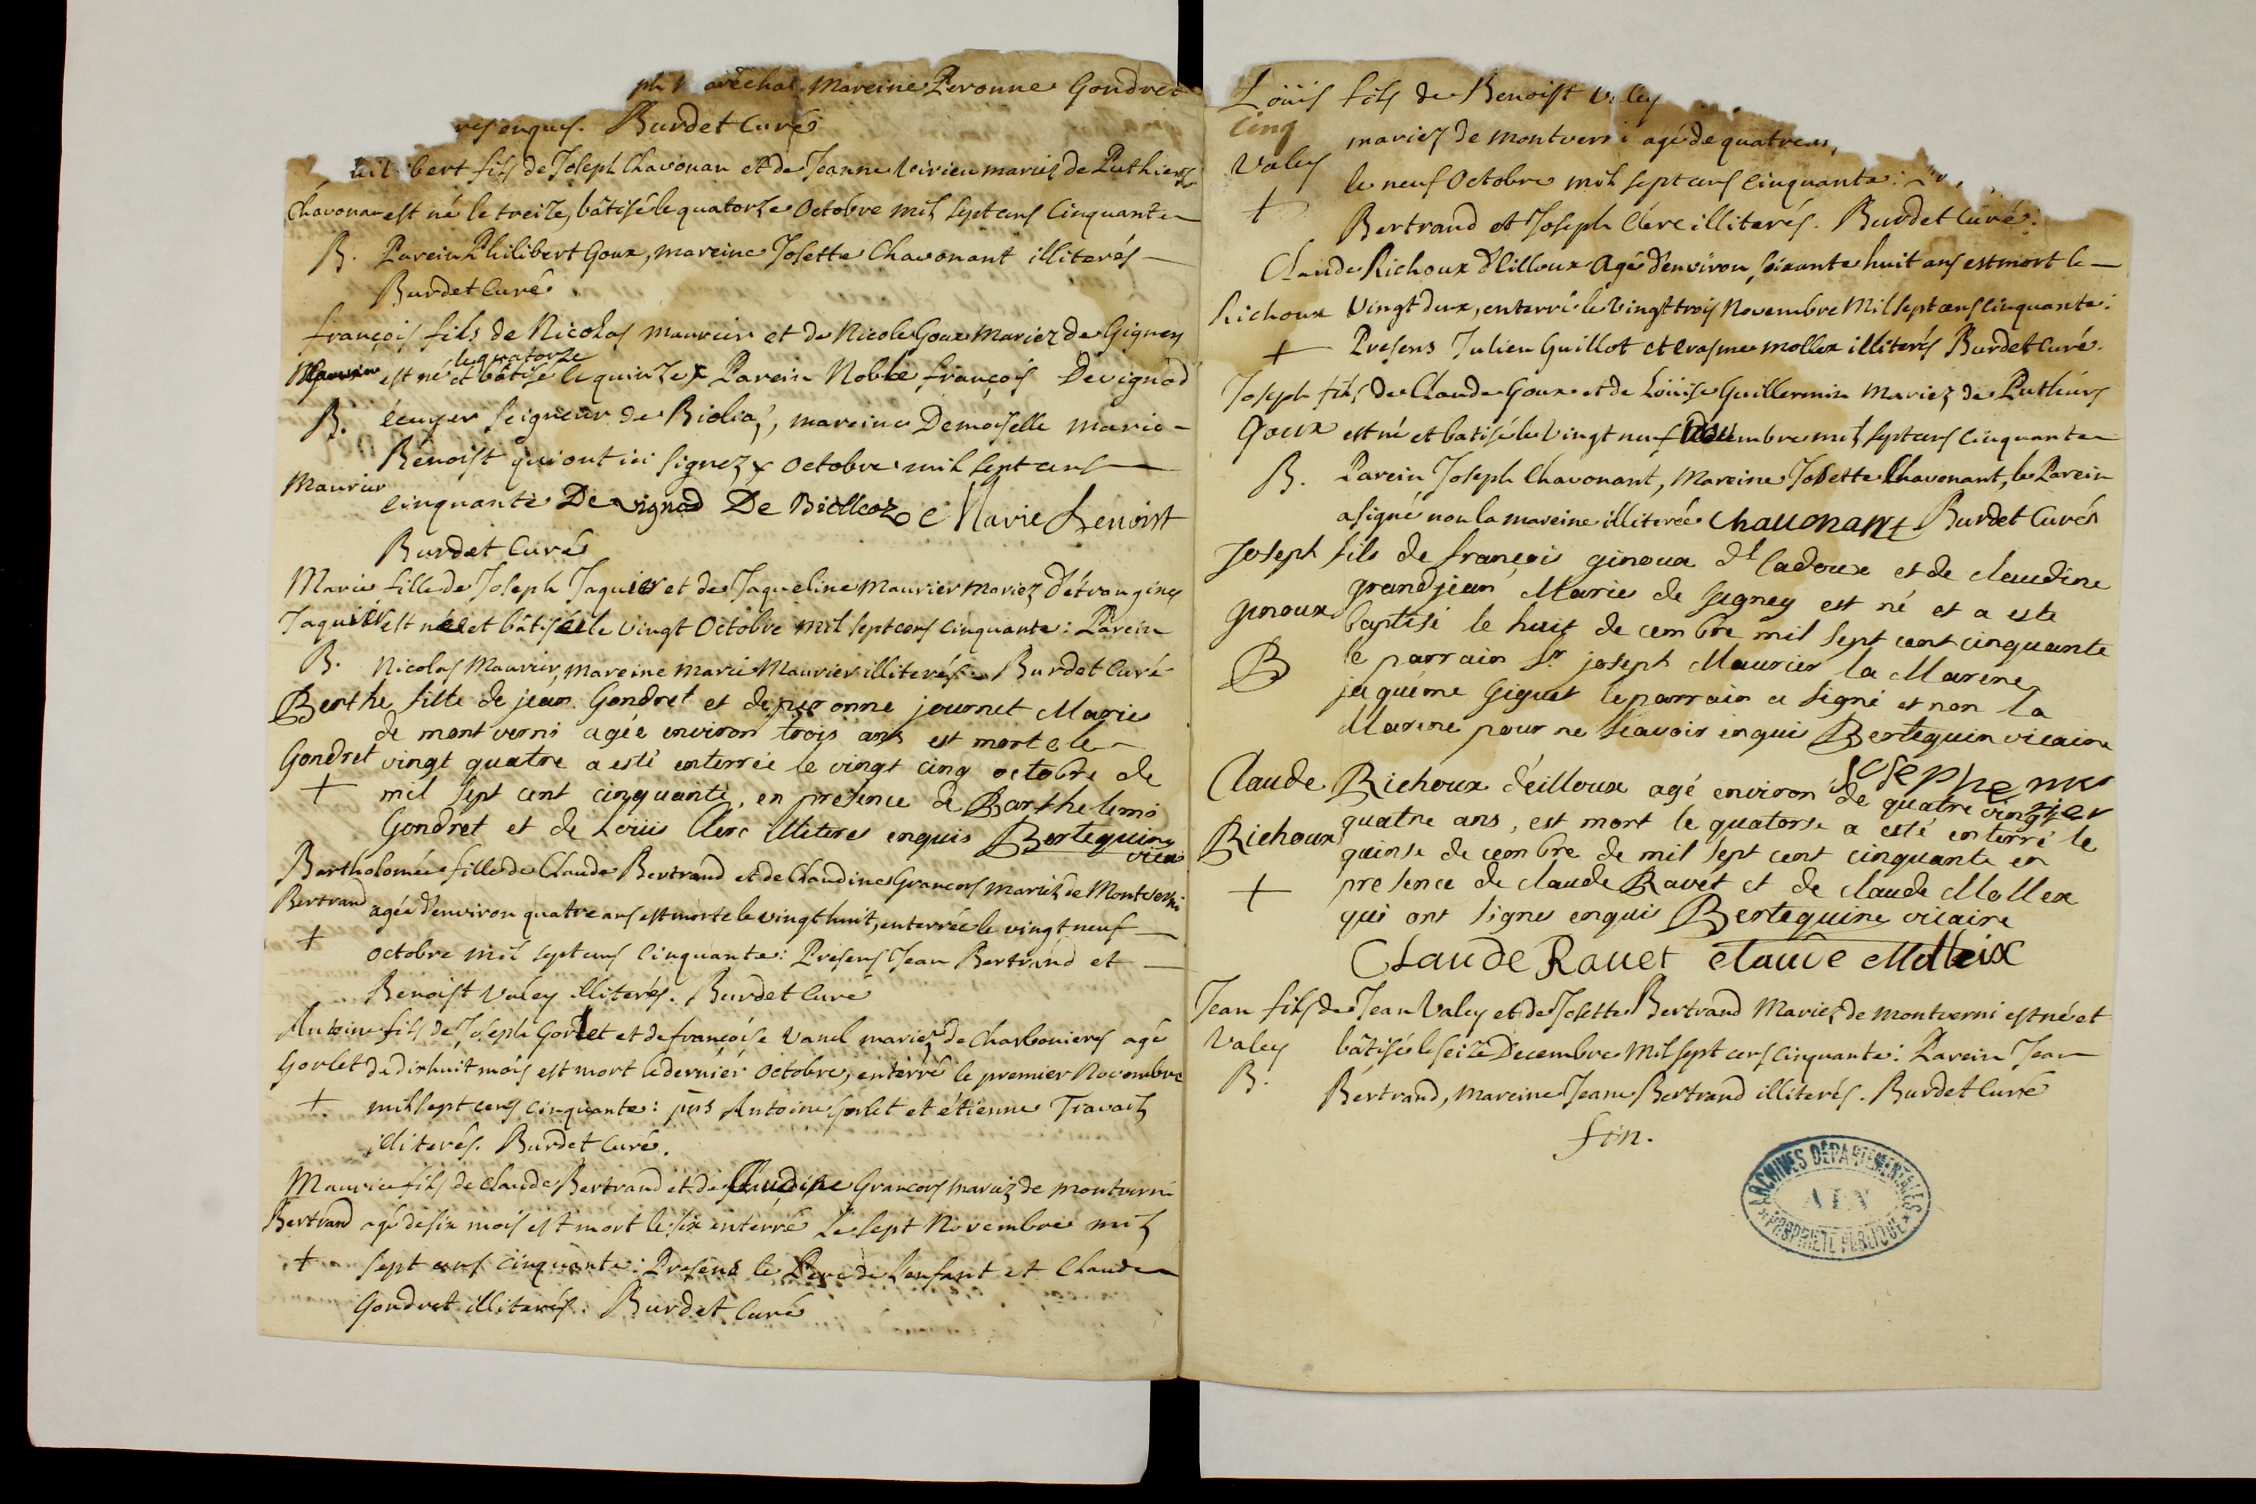 Marechal, Mareine Peronne Gondret
enquis. Burdet Curé
bert fils de Joseph Chavonan et de Jeanne Vivieu mariez de Puthiers
Chavonan est né le treize, bâtisé le quatorze Octobre mil sept cens Cinquante
B. Parein Philibert Goux, mareine Josette Chavonant illiterés
Burdet Curé
françois fils de Nicolas maurier et de Nicole Goux Mariez de Gigney
le quatorze
Maurier est né et bâtisé le quinze x Parein Noble françois Devignod
B. écuyer Seigneur de Biolia, mareine Demoiselle marie
Benoist qui ont ici signez x octobre mil sept cens
Maurier
cinquante De vignod De Biolleaz Marie Benoist
Burdet Curé
Marie fille de Joseph Jaquier et de Jaqueline Maurier Mariez d'étrangins
Jaquier est née et bâtisée le vingt Octobre mil sept cens cinquante: Parein
B. Nicolas Maurier, Mareine Marie Maurier illiterés. Burdet Curé
Berthe fille de jean Gondret et de peronne journet Maries
de montverni agée environ trois ans est morte le
Gondret vingt quatre a esté enterrée le vingt cinq octobre de
+ mil sept cent cinquante, en presence de Barthelemi
Gondret et de Loüis Clerc illiteres enquis Bertequin
vicai
Bartholomée fille de Claude Bertrand et de Claudine Grancors mariez de Montverni
Bertrand agée d'environ quatre ans est morte le vingt huit, enterrée le vingt neuf
+ octobre mil sept cens Cinquante: Presens Jean Bertrand et
Benoist Valey illiterés. Burdet Curé
Antoine fils de Joseph Gorlet et de françoise Vanel mariez de Charbonieres agé
Gorlet de dixhuit mois est mort le dernier Octobre, enterré le premier Novembre
+. mil sept cens cinquante: pns Antoine Gorlet et étienne Travail
illiterés. Burdet Curé.
Maurice fils de Claude Bertrand et de Claudine Grancors mariez de montverni
Bertrand agé de six mois est mort le six enterré Le sept Novembre mil
+ sept cens cinquante: Presens le Pere de l'enfant et Claude
Gondret illiterés. Burdet Curé
Loüis fils de Benoist Valey
Cinq
mariez de montverni agé de quatre ans
Valey
le neuf Octobre mil sept cens Cinquante:
+
Bertrand et Joseph Clerc illiterés. Burdet Curé.
Claude Richoux d'Eilloux Agé d'environ soixante huit ans est mort le
Richoux Vingt deux, enterré le Vingt trois Novembre Mil sept cens cinquante:
+ Presens Julien Guillot et Erasme mollex illiterés Burdet Curé.
Joseph fils de Claude Goux et de Loüise Guillermin Mariez de Puthiers
Goux est né et batisé le Vingt neuf Novembre mil sept cens Cinquante
B. Parein Joseph Chavonant, Mareine Josette Chavonant, le Parein
a signé non la mareine illiterée Chauonant Burdet Curé
Joseph fils de françois ginoux dt Cadoux et de claudine
grandjean Maries de Gigney est né et a este
ginoux baptisé le huit de cembre mil sept cent cinquante
B le parrain Sr joseph Maurier la Marene
jaquéme Giguet le parrain a signé et non la
Marene pour ne sçavoir enquis Bertequin vicaire
Joseph mourier
Claude Richoux d'éilloux agé environ de quatre vingt
Richoux quatre ans, est mort le quatorse a esté enterré le
quinse de cembre de mil sept cent cinquante en
+ presence de claude Ravet et de claude Mollex
qui ont signes enquis Bertequine vicaire
CLaude Rauet claude Molleix
Jean fils de Jean Valey et de Josette Bertrand Mariez de montverni est né et
Valey bâtisé le seize Decembre Mil sept cens cinquante: Parein Jean
B. Bertrand, Mareine Jeane Bertrand illiterés. Burdet Curé
fin.
ARCHIVES DÉPARTEMENTALES
AIN
PROPRIÉTÉ PUBLIQUE